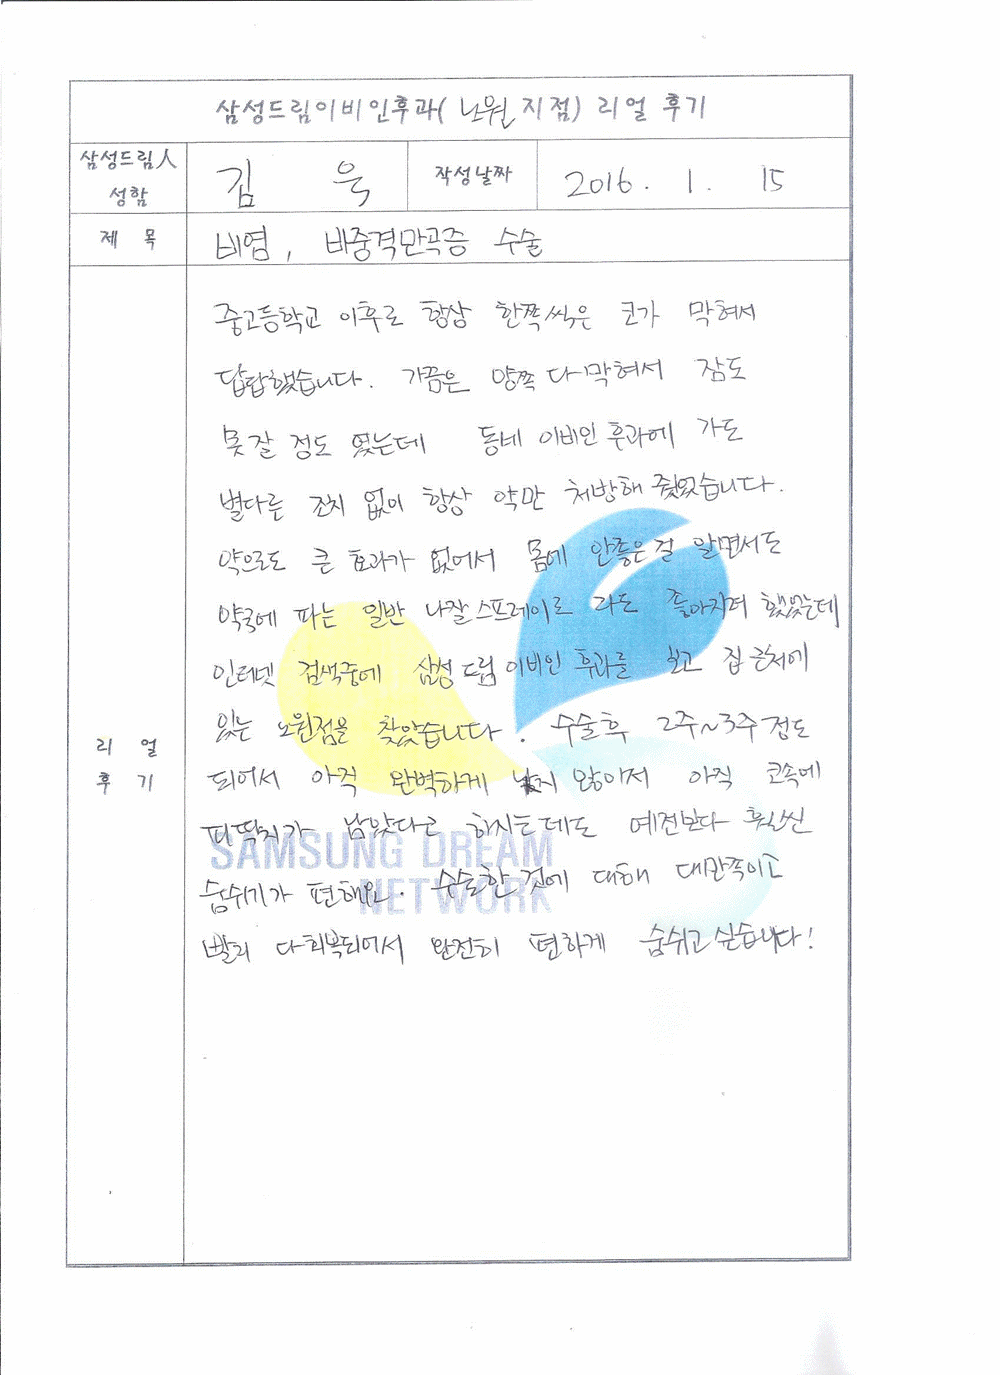 삼성드림이비인후과( 노원 지점) 리얼 후기
삼성드림人 성함
김 욱
작성날짜
2016. 1. 15
제 목
비염, 비중격만곡증 수술
리 얼
후 기
중고등학교 이후로 항상 한쪽씩은 코가 막혀서
답답했습니다. 가끔은 양쪽 다 막혀서 잠도
못잘 정도 였는데 동네 이비인후과에 가도
별다른 조치 없이 항상 약만 처방해 줬었습니다.
약으로도 큰 효과가 없어서 몸에 안좋은걸 알면서도
약국에 파는 일반 나잘스프레이로 라도 좋아지려 했었는데
인터넷 검색중에 삼성드림이비인후과를 보고 집 근처에
있는 노원점을 찾았습니다. 수술후 2주~3주정도
되어서 아직 완벽하게 낫지 않아서 아직 코속에
피딱지가 남았다고 하시는데도 예전보다 훨씬
숨쉬기가 편해요. 수술한 것에 대해 대만족이고
빨리 다 회복되어서 완전히 편하게 숨쉬고싶습니다!
SAMSUNG DREAM
NETWORK